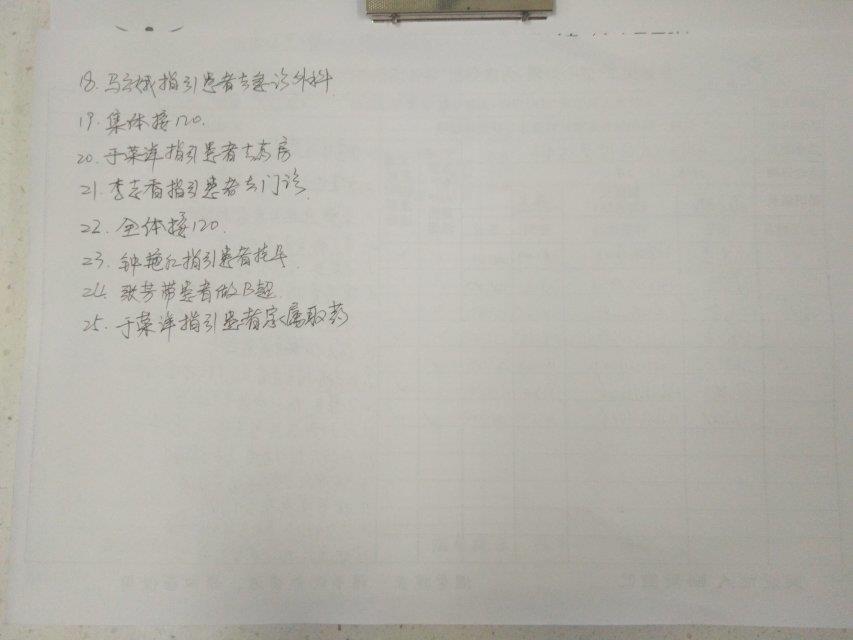 18. 马云娥指引患者去急诊外科
19. 集体接120.
20. 于荣洋指引患者去药房
21. 李志香指引患者去门诊.
22. 全体接120.
23. 钟艳红指引患者挂号
24. 张芳带患者做B超.
25. 于荣洋指引患者家属取药